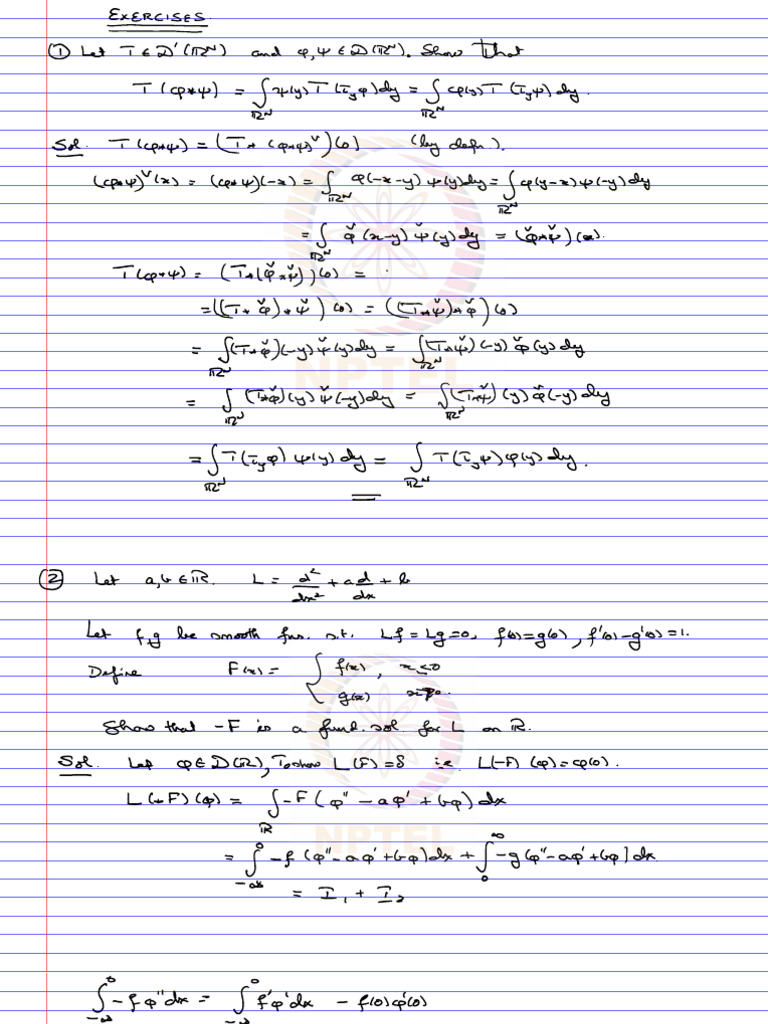 EXERCISES.
① Let T ∈ D'(ℝᴺ) and φ, ψ ∈ D(ℝᴺ). Show that
T(φ*ψ) = ∫_{ℝᴺ} ψ(y) T(τ_y φ) dy = ∫_{ℝᴺ} φ(y) T(τ_y ψ) dy.
Sol. T(φ*ψ) = (T * (φ*ψ)ˇ)(0) (by defn).
(φ*ψ)ˇ(x) = (φ*ψ)(-x) = ∫_{ℝᴺ} φ(-x-y) ψ(y) dy = ∫_{ℝᴺ} φ(y-x) ψ(-y) dy
= ∫_{ℝᴺ} φˇ(x-y) ψˇ(y) dy = (φˇ*ψˇ)(x).
T(φ*ψ) = (T*(φˇ*ψˇ))(0) =
= ((T*φˇ)*ψˇ)(0) = ((T*ψˇ)*φˇ)(0)
= ∫_{ℝᴺ} (T*φˇ)(-y) ψˇ(y) dy = ∫_{ℝᴺ} (T*ψˇ)(-y) φˇ(y) dy
= ∫_{ℝᴺ} (T*φˇ)(y) ψˇ(-y) dy = ∫_{ℝᴺ} (T*ψˇ)(y) φˇ(-y) dy
NPTEL
= ∫_{ℝᴺ} T(τ_y φ) ψ(y) dy = ∫_{ℝᴺ} T(τ_y ψ) φ(y) dy.
② Let a, b ∈ ℝ. L = d²/dx² + a d/dx + b
Let f, g be smooth fns. s.t. Lf = Lg = 0, f(0) = g(0), f'(0) - g'(0) = 1.
Define F(x) = { f(x), x ≤ 0
g(x) x > 0.
Show that -F is a fund. sol for L on ℝ.
Sol. Let φ ∈ D(ℝ), To show L(F) = δ i.e. L(-F)(φ) = φ(0).
L(-F)(φ) = ∫_ℝ -F(φ'' - aφ' + bφ) dx
NPTEL
= ∫_{-∞}^0 -f(φ'' - aφ' + bφ) dx + ∫_0^∞ -g(φ'' - aφ' + bφ) dx
= I₁ + I₂
∫_{-∞}^0 -fφ'' dx = ∫_{-∞}^0 f'φ' dx - f(0)φ'(0)